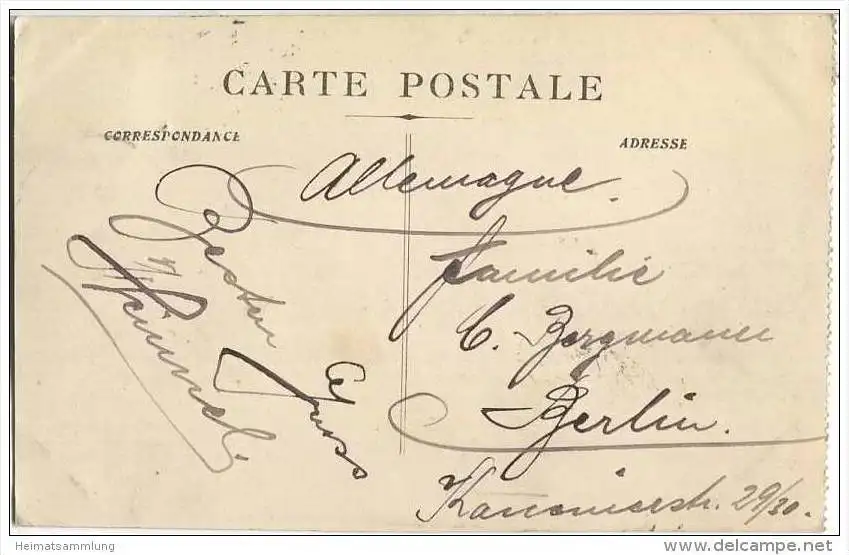 CARTE POSTALE
CORRESPONDANCE
ADRESSE
Allemagne.
Familie
C. Bergmann
Berlin.
Kanonierstr. 29/30.
Besten
Gruss
Heimatsammlung
www.delcampe.net